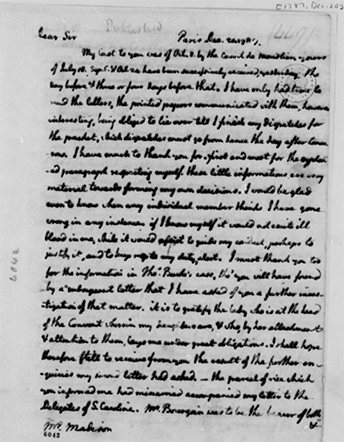 Published
Dear Sir Paris Dec. 20. 1787.
My last to you was of Oct. 8. by the Count de Moustier. yours
of July 18. Sep. 6. & Oct. 24. have been successively received, yesterday, the
day before & three or four days before that. I have only had time to
read the letters, the printed papers communicated with them, however
interesting, being obliged to lie over till I finish my dispatches for
the packet, which dispatches must go from hence the day after tomor-
row. I have much to thank you for. first and most for the cyphered
paragraph respecting myself. these little informations are very
material towards forming my own decisions. I would be glad
even to know when any individual member thinks I have gone
wrong in any instance. if I know myself it would not excite ill
blood in me, while it would assist to guide my conduct, perhaps to
justify it, and to keep me to my duty, alert. I must thank you too
for the information in Tho's. Burke's case, tho' you will have found
by a subsequent letter that I have asked of you a further inves-
tigation of that matter. it is to gratify the lady who is at the head
of the Convent wherein my daughters are, & who, by her attachment
& attention to them, lays me under great obligations. I shall hope
therefore still to receive from you the result of the further en-
quiries my second letter had asked. the parcel of rice which
you informed me had miscarried accompanied my letter to the
Delegates of S. Carolina. Mr. Bourgoin was to be the bearer of both
&
Mr. Madison
6042